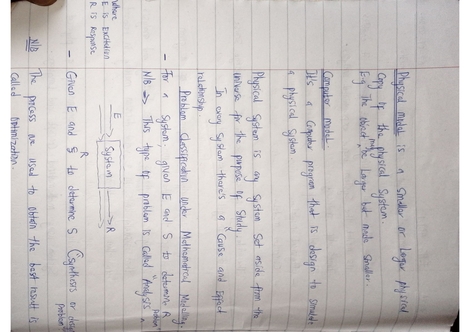 Physical model is a smaller or larger physical
copy of the physical system.
E.g The object may be larger but made smaller.
Computer model
It's a computer program that is design to simulate
a physical system
Physical System is any System Set aside from the
universe for the purpose of study.
In every System there's a "Cause and Effect
relationship.
Problem Classification under Mathematical Modelling.
- For a System, given E and S to determine R
N/B → This type of problem is called "Analysis problem"
where
E is Excitation
R is Response
E System R
- Given E and R to determine S (Synthesis or design
problem
N/B The process we used to obtain the best result is
called optimization.